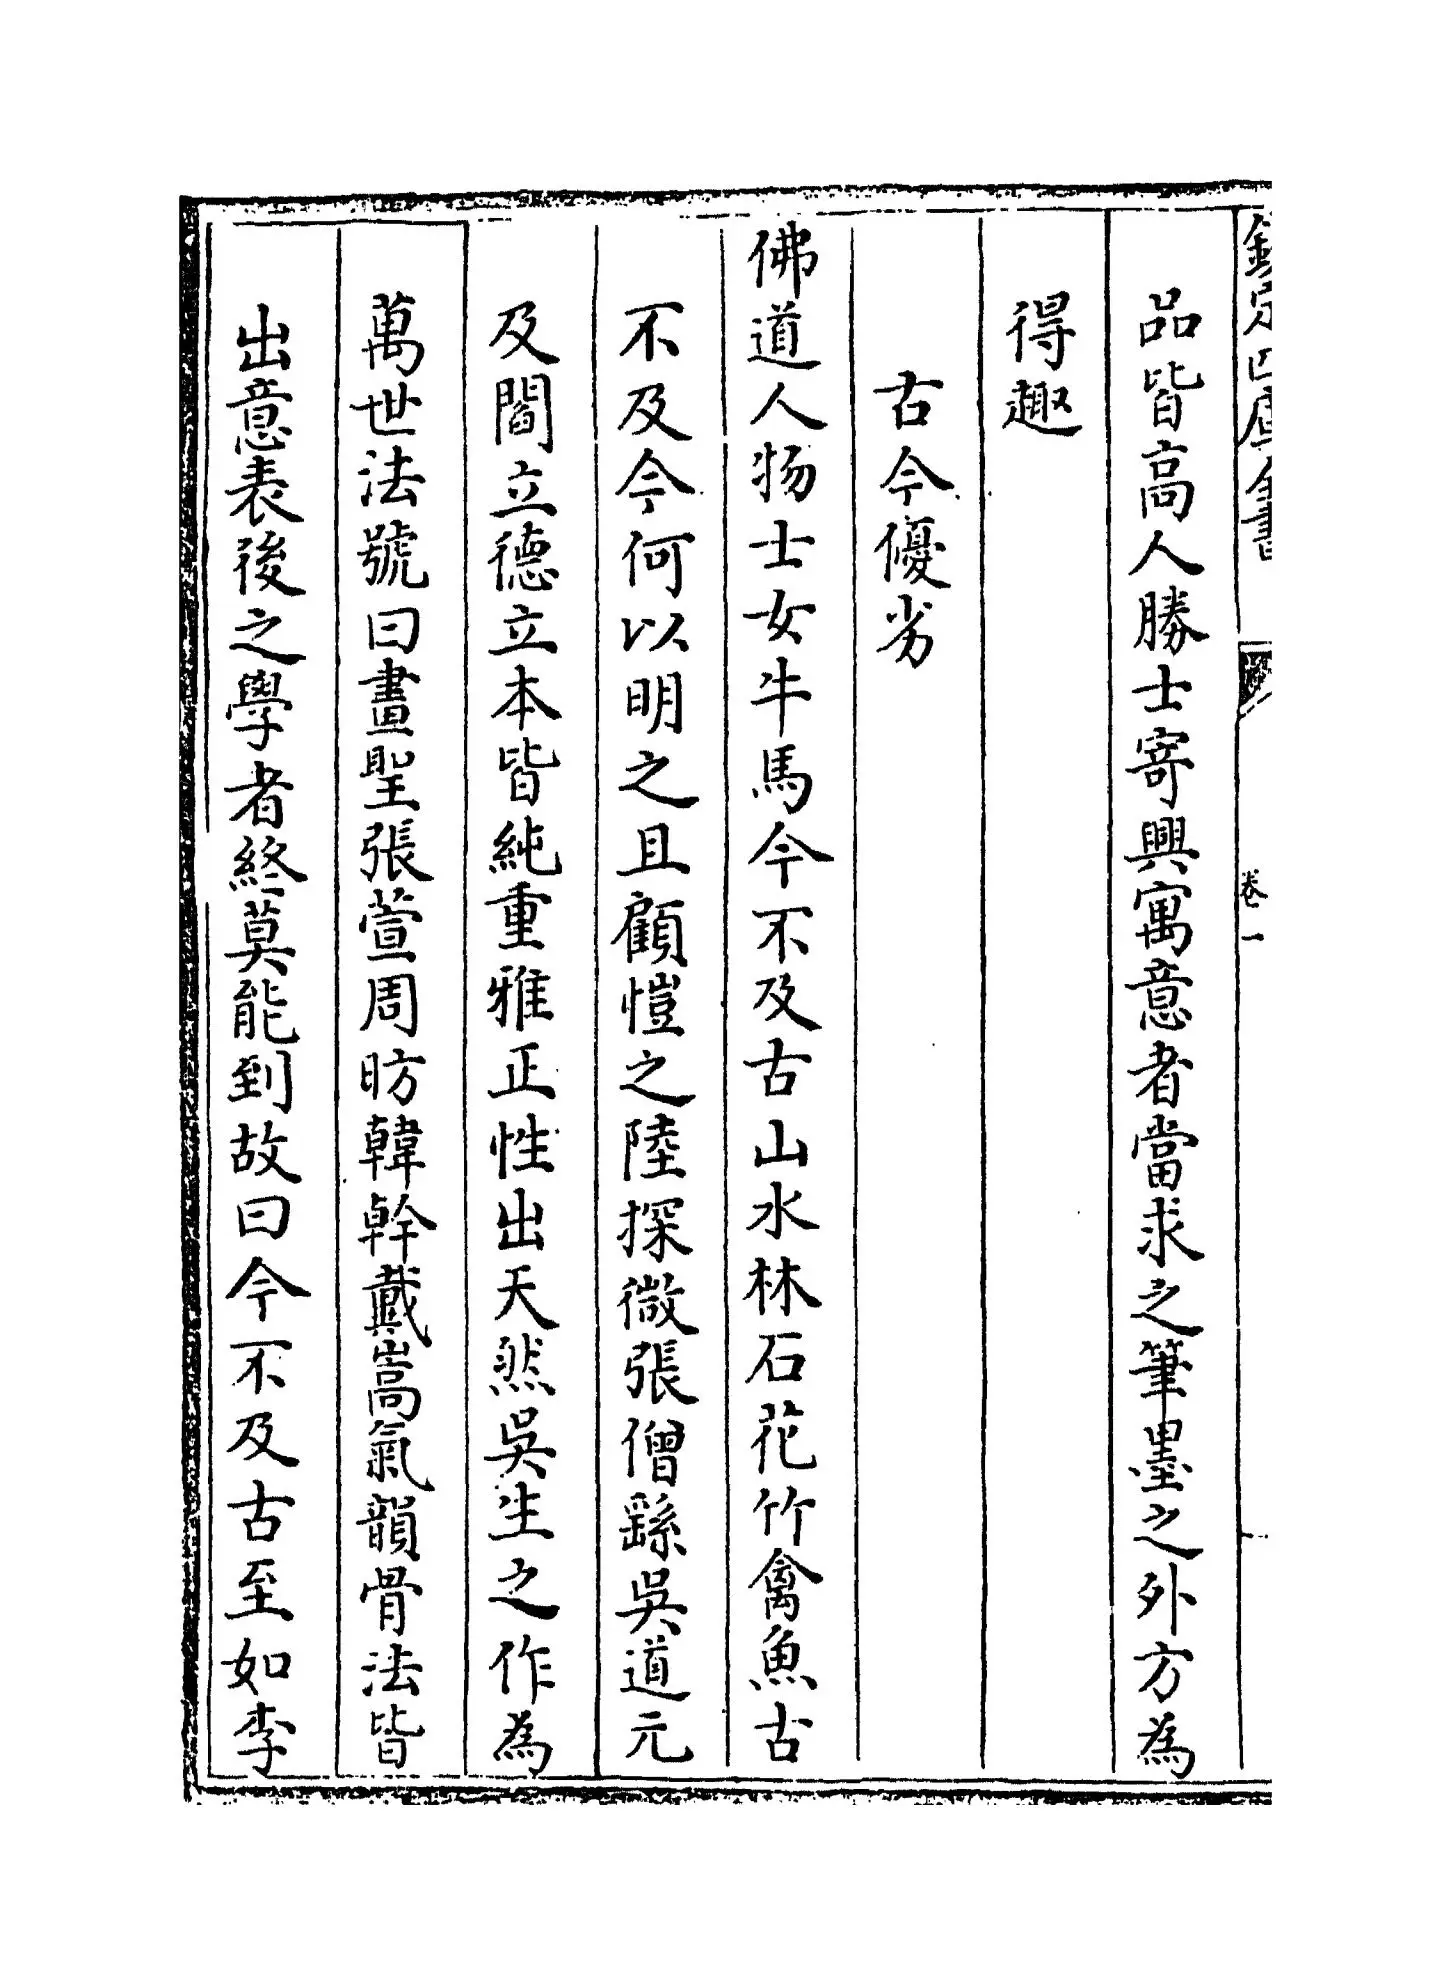 欽定四庫全書
卷一
品皆高人勝士寄興寓意者當求之筆墨之外方為
得趣
古今優劣
佛道人物士女牛馬今不及古山水林石花竹禽魚古
不及今何以明之且顧愷之陸探微張僧繇吳道元
及閻立德立本皆純重雅正性出天然吳生之作為
萬世法號曰畫聖張萱周昉韓幹戴嵩氣韻骨法皆
出意表後之學者終莫能到故曰今不及古至如李